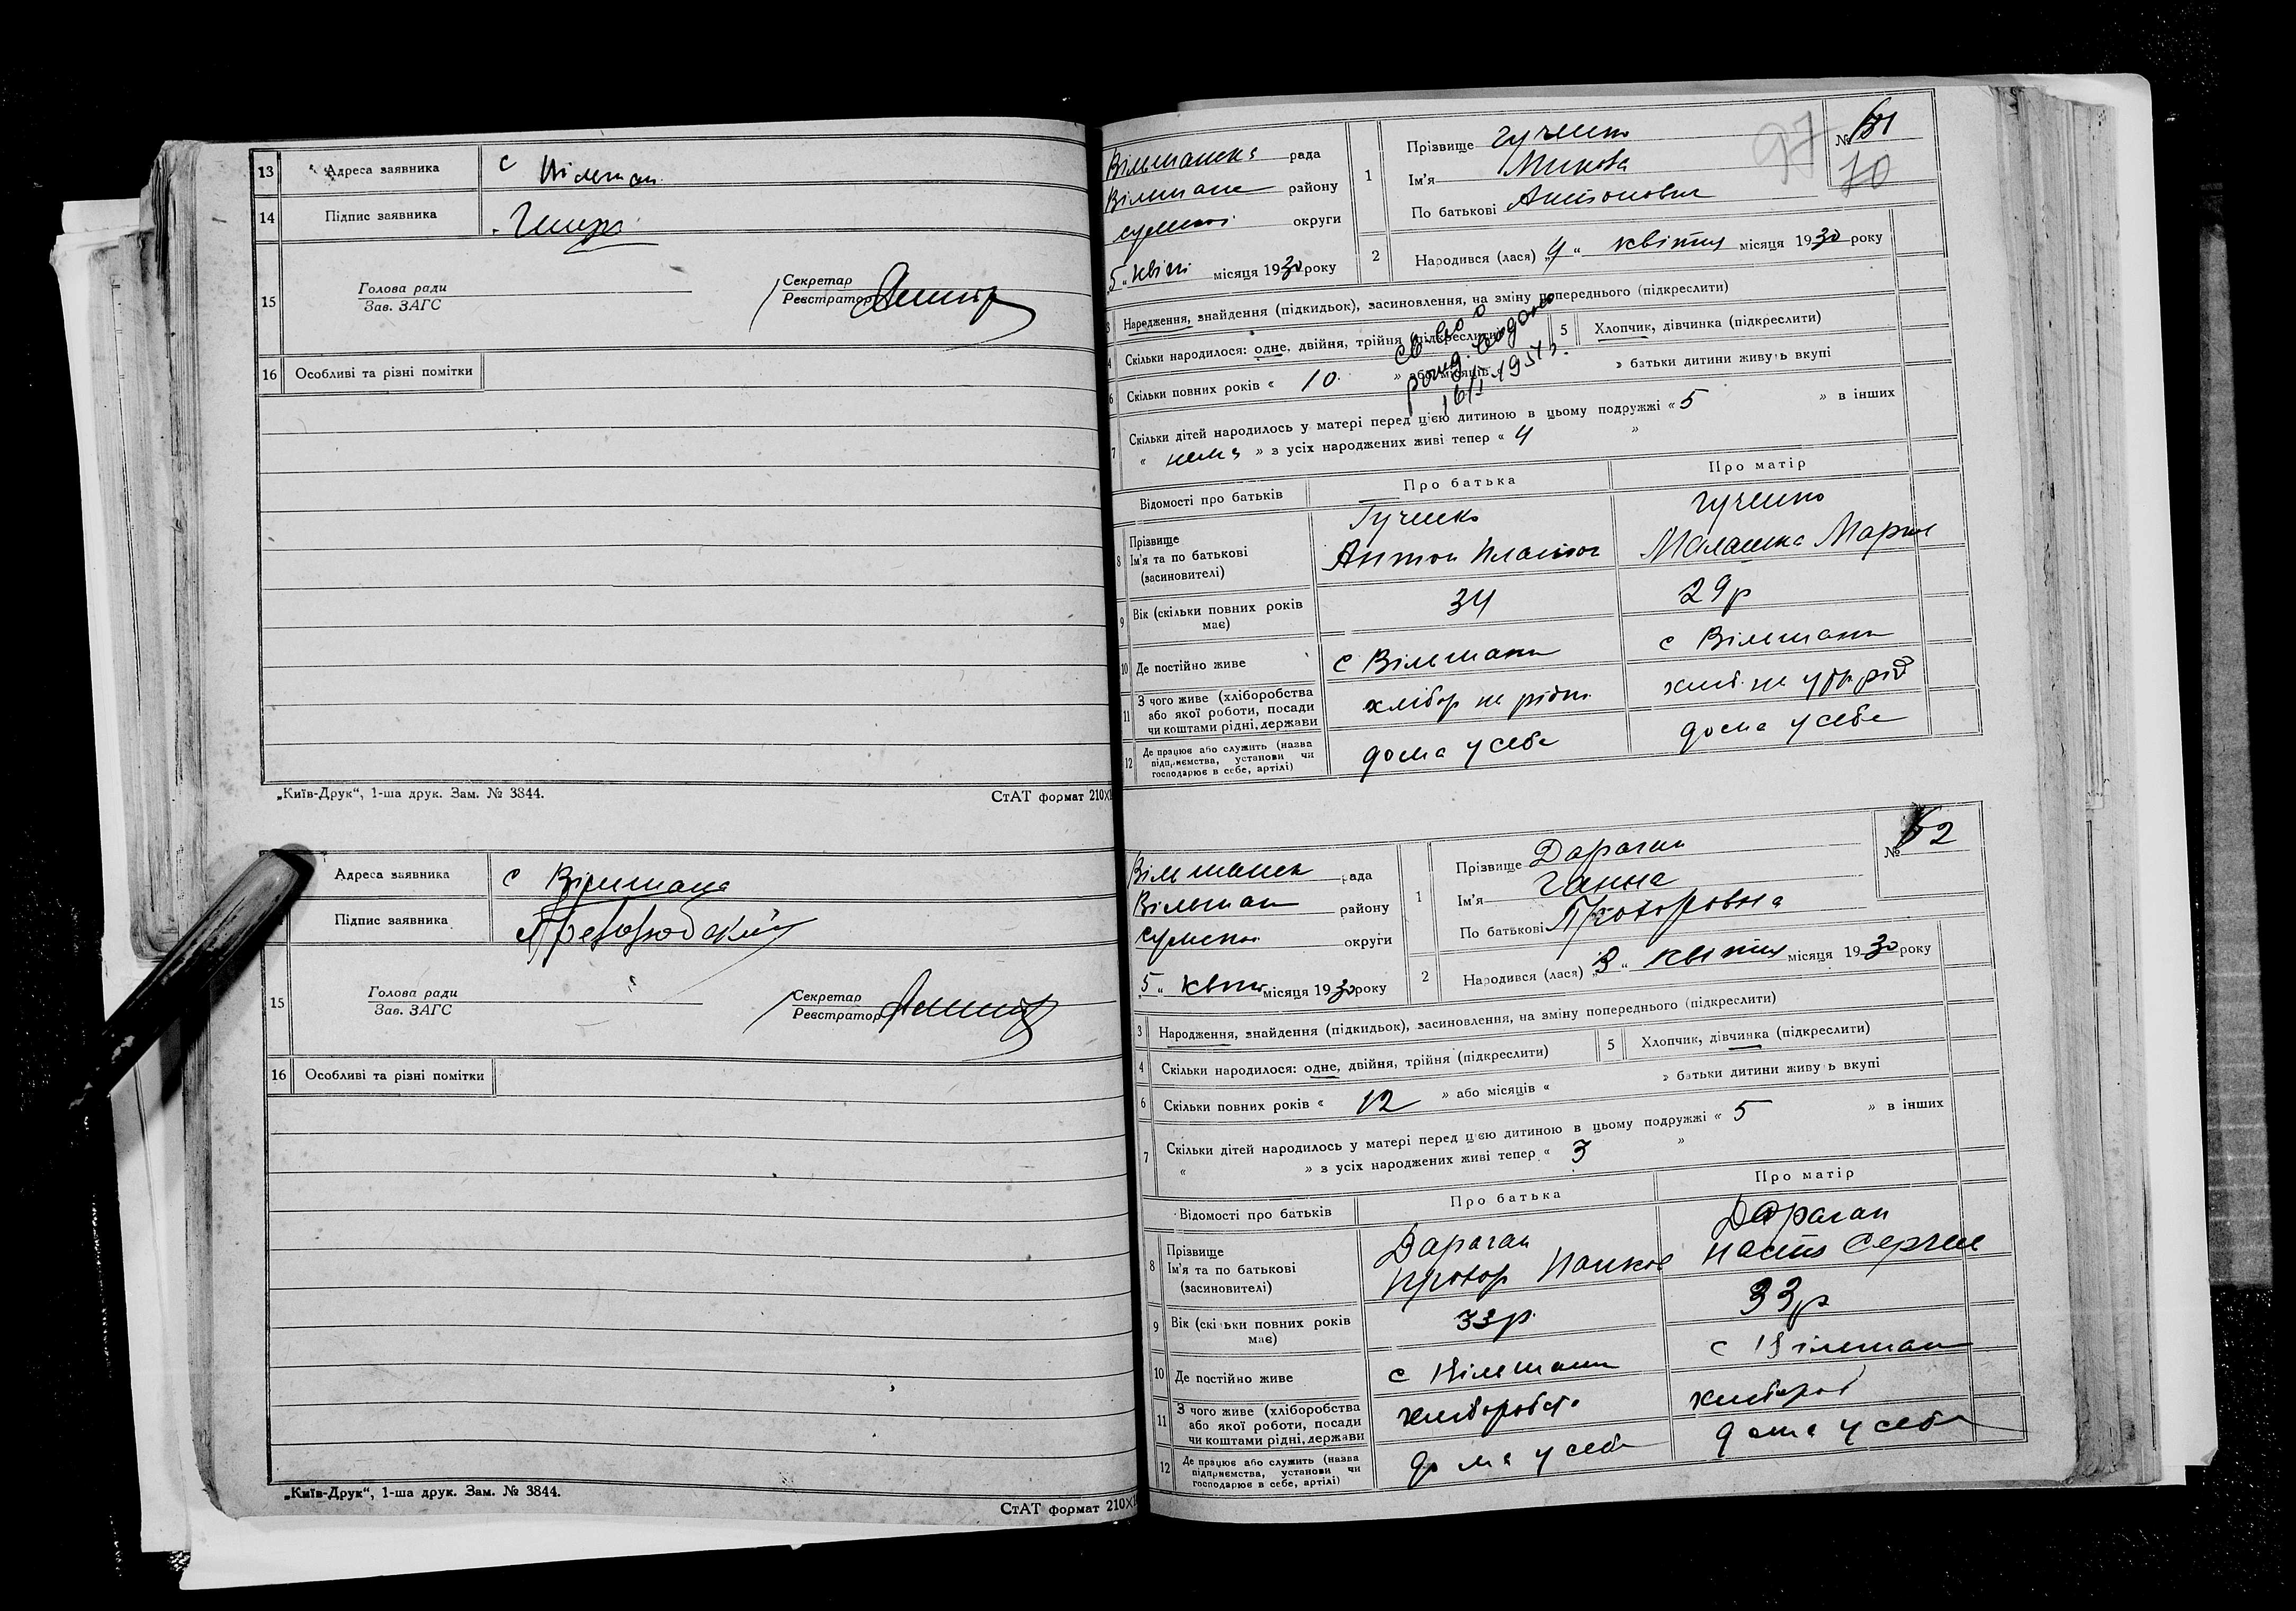 13 Адреса заявника с Вільшан
14 Підпис заявника
15 Голова ради
Зав. ЗАГС
Секретар
Реєстратор
16 Особливі та різні помітки
„Київ-Друк“, 1-ша друк. Зам. № 3844.
СтАТ формат 210X
Адреса заявника с Вільшана
Підпис заявника
15 Голова ради
Зав. ЗАГС
Секретар
Реєстратор
16 Особливі та різні помітки
„Київ-Друк“, 1-ша друк. Зам. № 3844.
СтАТ формат 210X
97
№ 61
70
Вільшанська рада
Вільшан району
сумської округи
5 квіт місяця 1930 року
1 Прізвище Гученко
Ім'я Микола
По батькові Антонович
2 Народився (лася) „4“ квітня місяця 1930 року
3 Народження, знайдення (підкидьок), засиновлення, на зміну попереднього (підкреслити)
4 Скільки народилося: одне, двійня, трійня (підкреслити)
5 Хлопчик, дівчинка (підкреслити)
св-во о
рожд. выдано
16/I 1951 г.
6 Скільки повних років « 10 » або місяців « » батьки дитини живуть вкупі
7 Скільки дітей народилось у матері перед цією дитиною в цьому подружжі « 5 » в інших
« нема » з усіх народжених живі тепер « 4 »
Відомості про батьків Про батька Про матір
8 Прізвище Гученко Гученко
Ім'я та по батькові Антон Платон Малашка Марк
(засновителі)
9 Вік (скільки повних років має) 34 29р
10 Де постійно живе с Вільшани с Вільшани
11 З чого живе (хліборобства
або якої роботи, посади
чи коштами рідні, держави хлібор
12 Де працює або служить (назва
підприємства, установи чи
господарює в себе, артілі) дома у себе дома у себе
№ 62
Вільшанськ рада
Вільшан району
сумської округи
„5“ квітн місяця 1930 року
1 Прізвище Дараган
Ім'я Ганна
По батькові Прохоровна
2 Народився (лася) „3“ квітня місяця 1930 року
3 Народження, знайдення (підкидьок), засиновлення, на зміну попереднього (підкреслити)
4 Скільки народилося: одне, двійня, трійня (підкреслити)
5 Хлопчик, дівчинка (підкреслити)
6 Скільки повних років « 12 » або місяців « » батьки дитини живуть вкупі
7 Скільки дітей народилось у матері перед цією дитиною в цьому подружжі « 5 » в інших
« » з усіх народжених живі тепер « 3 »
Відомості про батьків Про батька Про матір
8 Прізвище Дараган Дараган
Ім'я та по батькові Прохор Панков Настя Сергіє
(засиновителі)
9 Вік (скільки повних років має) 33р 33р
10 Де постійно живе с Вільшани с Вільшан
11 З чого живе (хліборобства
або якої роботи, посади
чи коштами рідні, держави хліборобств хлібороб
12 Де працює або служить (назва
підприємства, установи чи
господарює в себе, артілі) дома у себе дома у себе